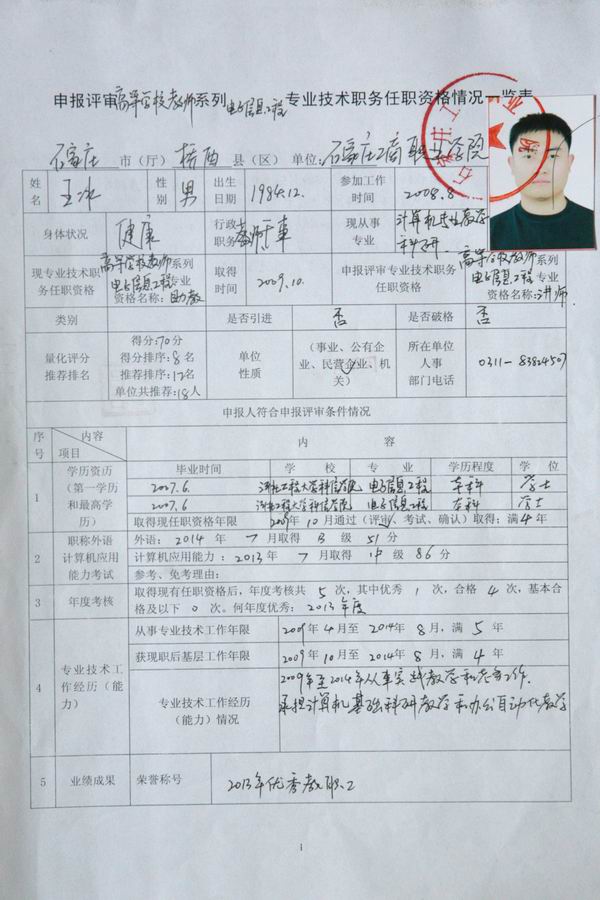 申报评审高等学校教师系列电子信息工程专业技术职务任职资格情况一览表
石家庄 市(厅) 桥西 县(区) 单位:石家庄工商职业学院
姓名 王冰 性别 男 出生日期 1984.12. 参加工作时间 2008.8
身体状况 健康 行政职务 现从事专业 计算机专业教学科研.
现专业技术职务任职资格 高等学校教师系列电子信息工程专业资格名称:助教 取得时间 2009.10. 申报评审专业技术职务任职资格 高等学校教师系列电子信息工程专业资格名称:讲师.
类别 是否引进 否 是否破格 否
量化评分推荐排名 得分:70分
得分排序:8名
推荐排序:12名
单位共推荐:18人
单位性质 (事业、公有企业、民营企业、机关) 所在单位人事部门电话 0311-83824507
申报人符合申报评审条件情况
序号 内容 项目 内 容
1 学历资历(第一学历和最高学历) 毕业时间 学 校 专 业 学历程度 学 位
2007.6. 河北工程大学科信学院 电子信息工程 本科 学士
2007.6 河北工程大学科信学院 电子信息工程 本科 学士
取得现任职资格年限 2009年10月通过(评审、考试、确认)取得;满4年
2 职称外语计算机应用能力考试 外语:2014年 7月取得 B 级 51分
计算机应用能力:2013年 7月取得 中 级 86分
参考、免考理由:
3 年度考核 取得现有任职资格后,年度考核共 5 次,其中优秀 1 次,合格 4 次,基本合格及以下 0 次。何年度优秀:2013年度
4 专业技术工作经历(能力) 从事专业技术工作年限 2009年4月至2014年8月,满 5 年
获现职后基层工作年限 2009年10月至2014年8月,满 4 年
专业技术工作经历(能力)情况 2009年至2014年从事实践教学和教务工作.
承担计算机基础科研教学和办公自动化教学
5 业绩成果 荣誉称号 2013年优秀教职工
1